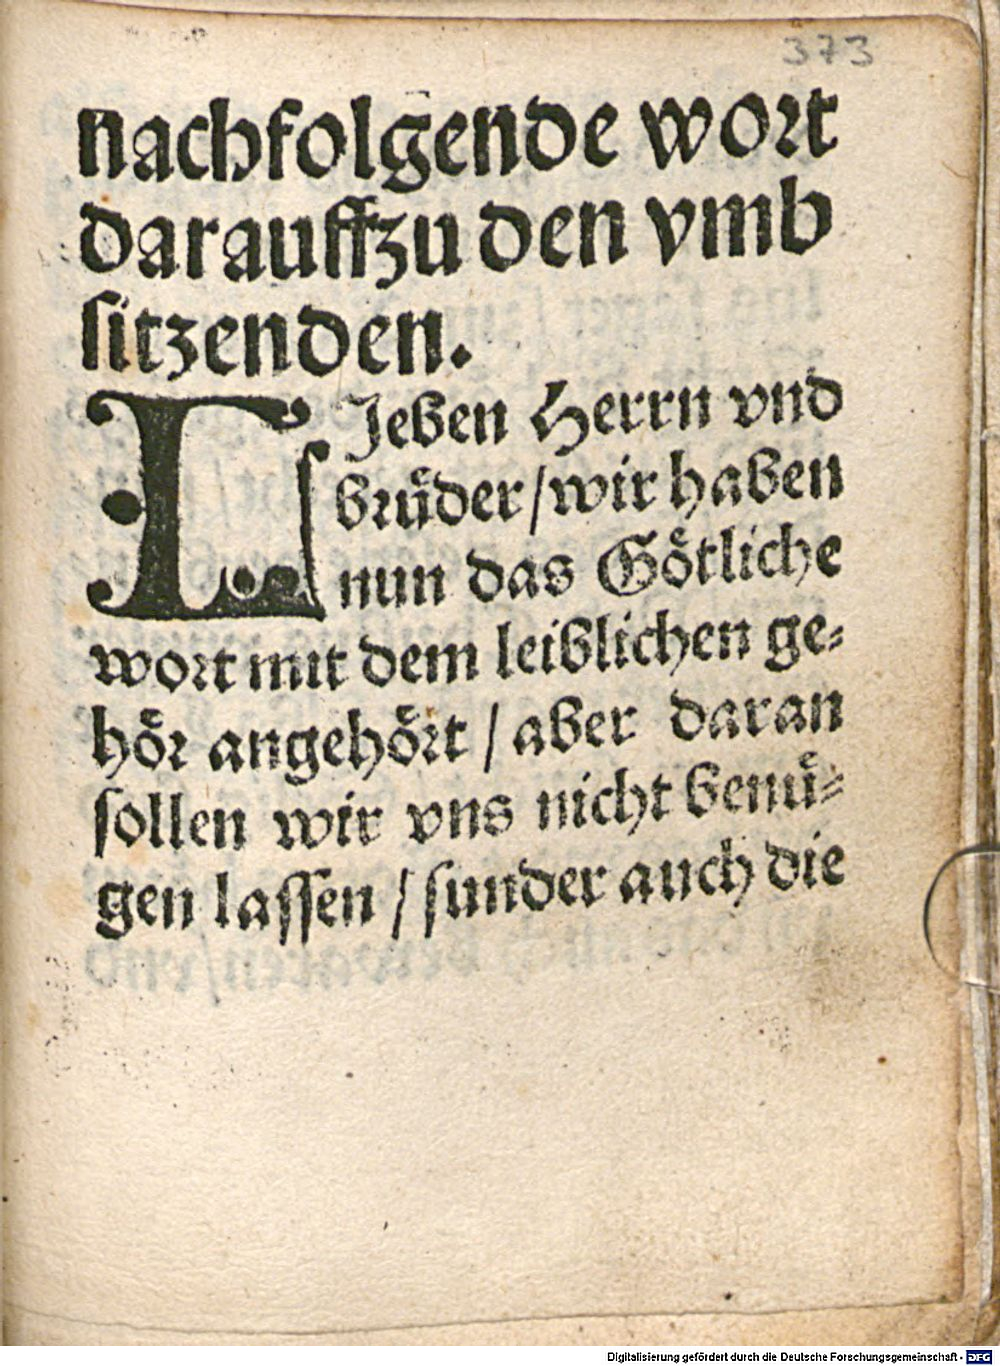 373
nachfolgende wort
darauff zu den vmb
sitzenden.
LJeben Herrn vnd
bruͤder / wir haben
nun das Goͤtliche
wort mit dem leiblichen ge⸗
hoͤr angehoͤrt / aber daran
sollen wir vns nicht benuͤ⸗
gen lassen / sunder auch die
Digitalisierung gefördert durch die Deutsche Forschungsgemeinschaft - DFG